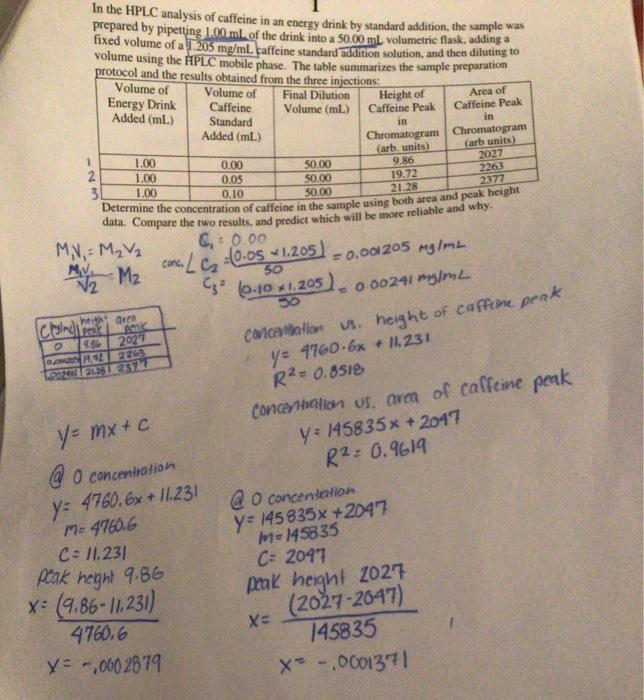 In the HPLC analysis of caffeine in an energy drink by standard addition, the sample was
prepared by pipetting 1.00 mL of the drink into a 50.00 mL volumetric flask, adding a
fixed volume of a 1.205 mg/mL caffeine standard addition solution, and then diluting to
volume using the HPLC mobile phase. The table summarizes the sample preparation
protocol and the results obtained from the three injections:
Volume of Energy Drink Added (mL) Volume of Caffeine Standard Added (mL) Final Dilution Volume (mL) Height of Caffeine Peak in Chromatogram (arb. units) Area of Caffeine Peak in Chromatogram (arb units)
1 1.00 0.00 50.00 9.86 2027
2 1.00 0.05 50.00 19.72 2263
3 1.00 0.10 50.00 21.28 2377
Determine the concentration of caffeine in the sample using both area and peak height
data. Compare the two results, and predict which will be more reliable and why.
M₁V₁ = M₂V₂
M₁V₁/V₂ = M₂
C₁ = 0.00
conc. C₂ = (0.05 × 1.205)/50 = 0.001205 mg/mL
C₃ = (0.10 × 1.205)/50 = 0.00241 mg/mL
height peak area peak
0 9.86 2027
19.72 2263
21.28 2377
concentration vs. height of caffeine peak
y = 4760.6x + 11.231
R² = 0.8518
concentration vs. area of caffeine peak
y = 145835x + 2047
R² = 0.9619
y = mx + c
@ 0 concentration
y = 4760.6x + 11.231
m = 4760.6
C = 11.231
Peak height 9.86
x = (9.86 - 11.231)/4760.6
x = -.0002879
@ 0 concentration
y = 145835x + 2047
m = 145835
C = 2047
peak height 2027
x = (2027 - 2047)/145835
x = -.0001371